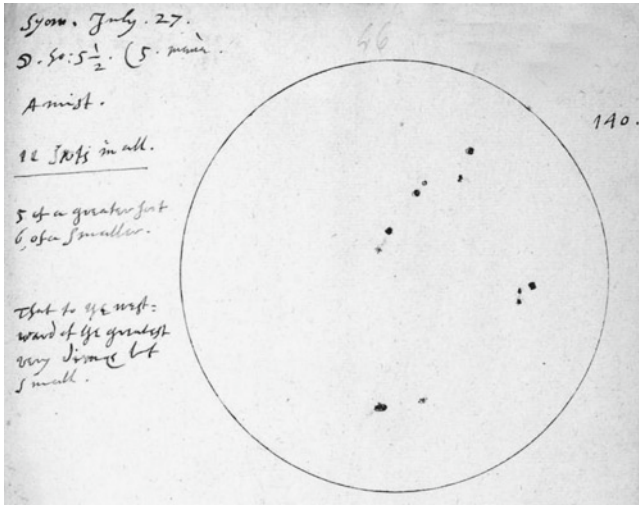 Syon. July. 27.
ho: 5 1/2. (5.
A mist.
140.
Spots in all.
5 of a greater sort
6, of a smaller.
That to ye west=
ward of ye greatest
very but
small.